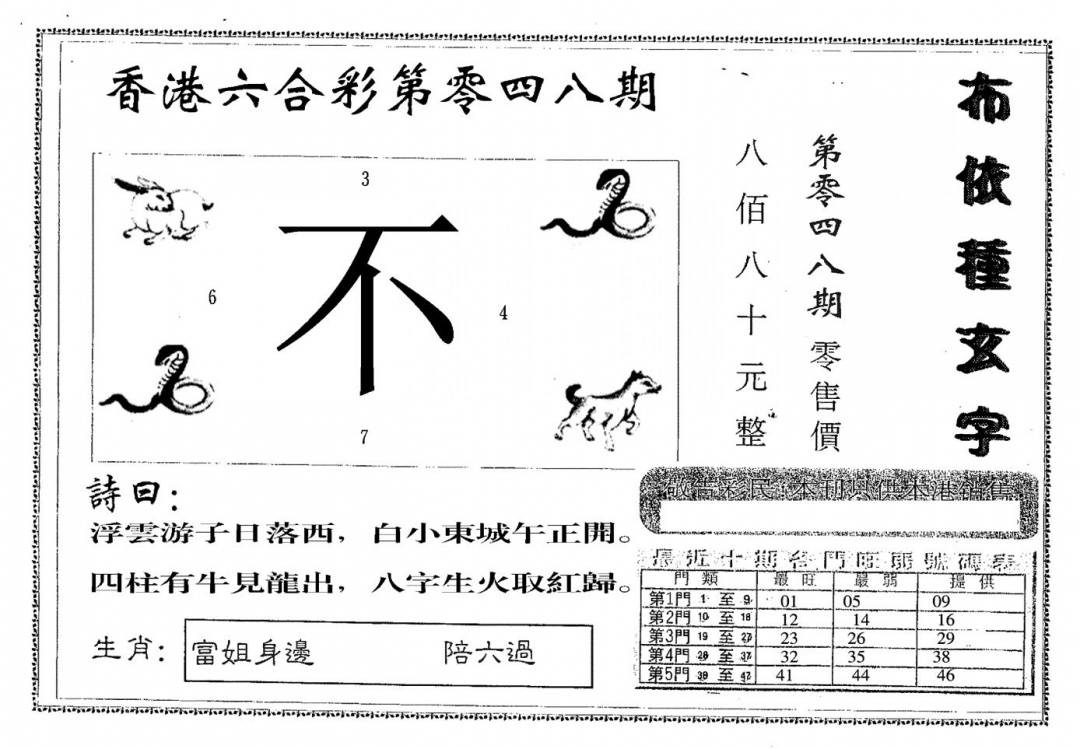 香港六合彩第零四八期
布依種玄字
第零四八期零售價
八佰八十元整
3
不
6
4
7
詩曰：
浮雲游子日落西，白小東城午正開。
四柱有牛見龍出，八字生火取紅歸。
生肖：富姐身邊 陪六過
敬告彩民：本刊只供本港銷售
最近十期各門旺弱號碼表
門類 最旺 最弱 提供
第1門 1 至 9 01 05 09
第2門 10 至 18 12 14 16
第3門 19 至 27 23 26 29
第4門 28 至 37 32 35 38
第5門 38 至 47 41 44 46